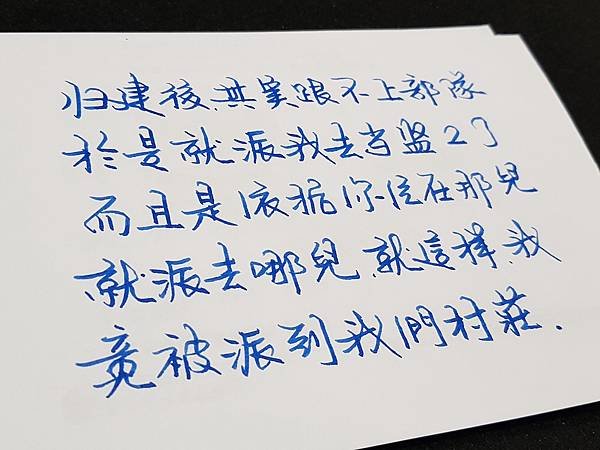 归建後,其實跟不上部隊
於是就派我去当监工了
而且是依据你住在那兒
就派去哪兒,就這樣,我
竟被派到我們村莊.